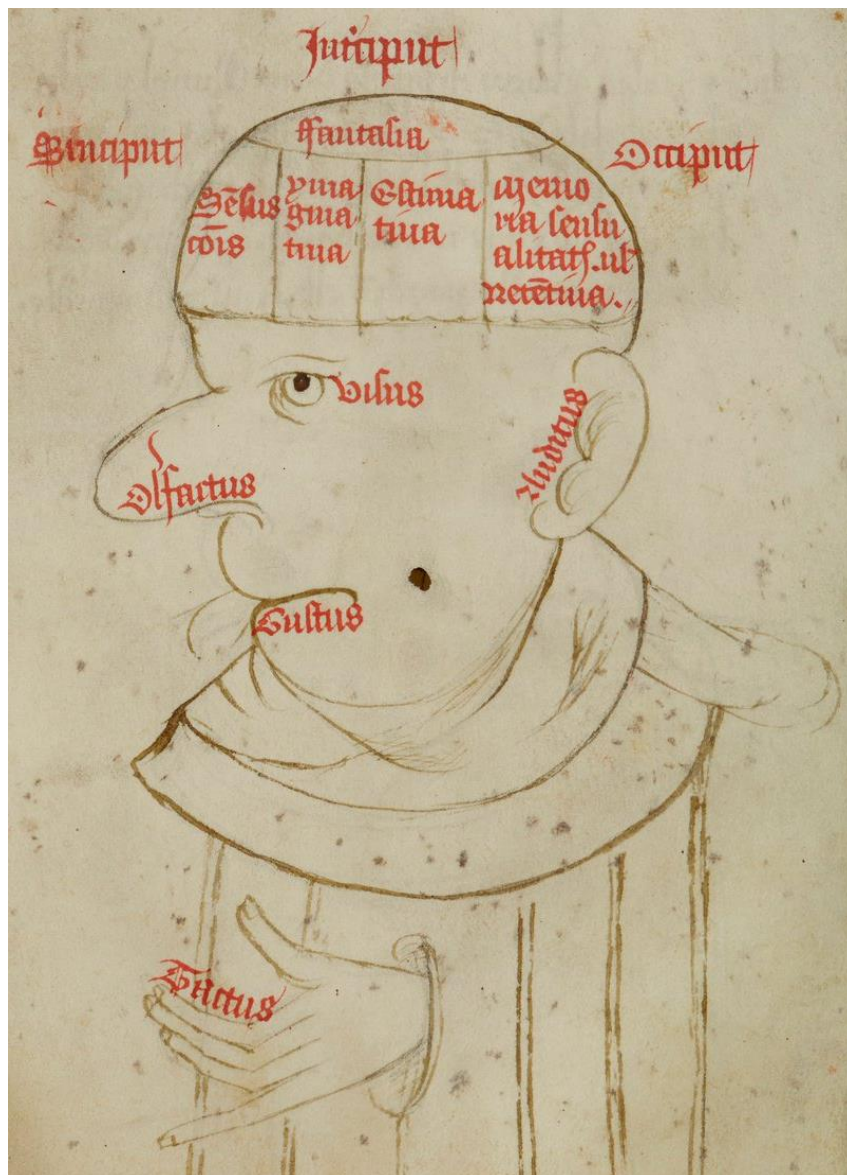 Int'ciput
Sinciput
Occiput
ffantasia
Sēsus
cōis
yma
gina
tiua
Estima
tiua
Memo
ria sensu
alitat̄. ul'
retētiua.
Visus
Auditus
Olfactus
Gustus
Tactus